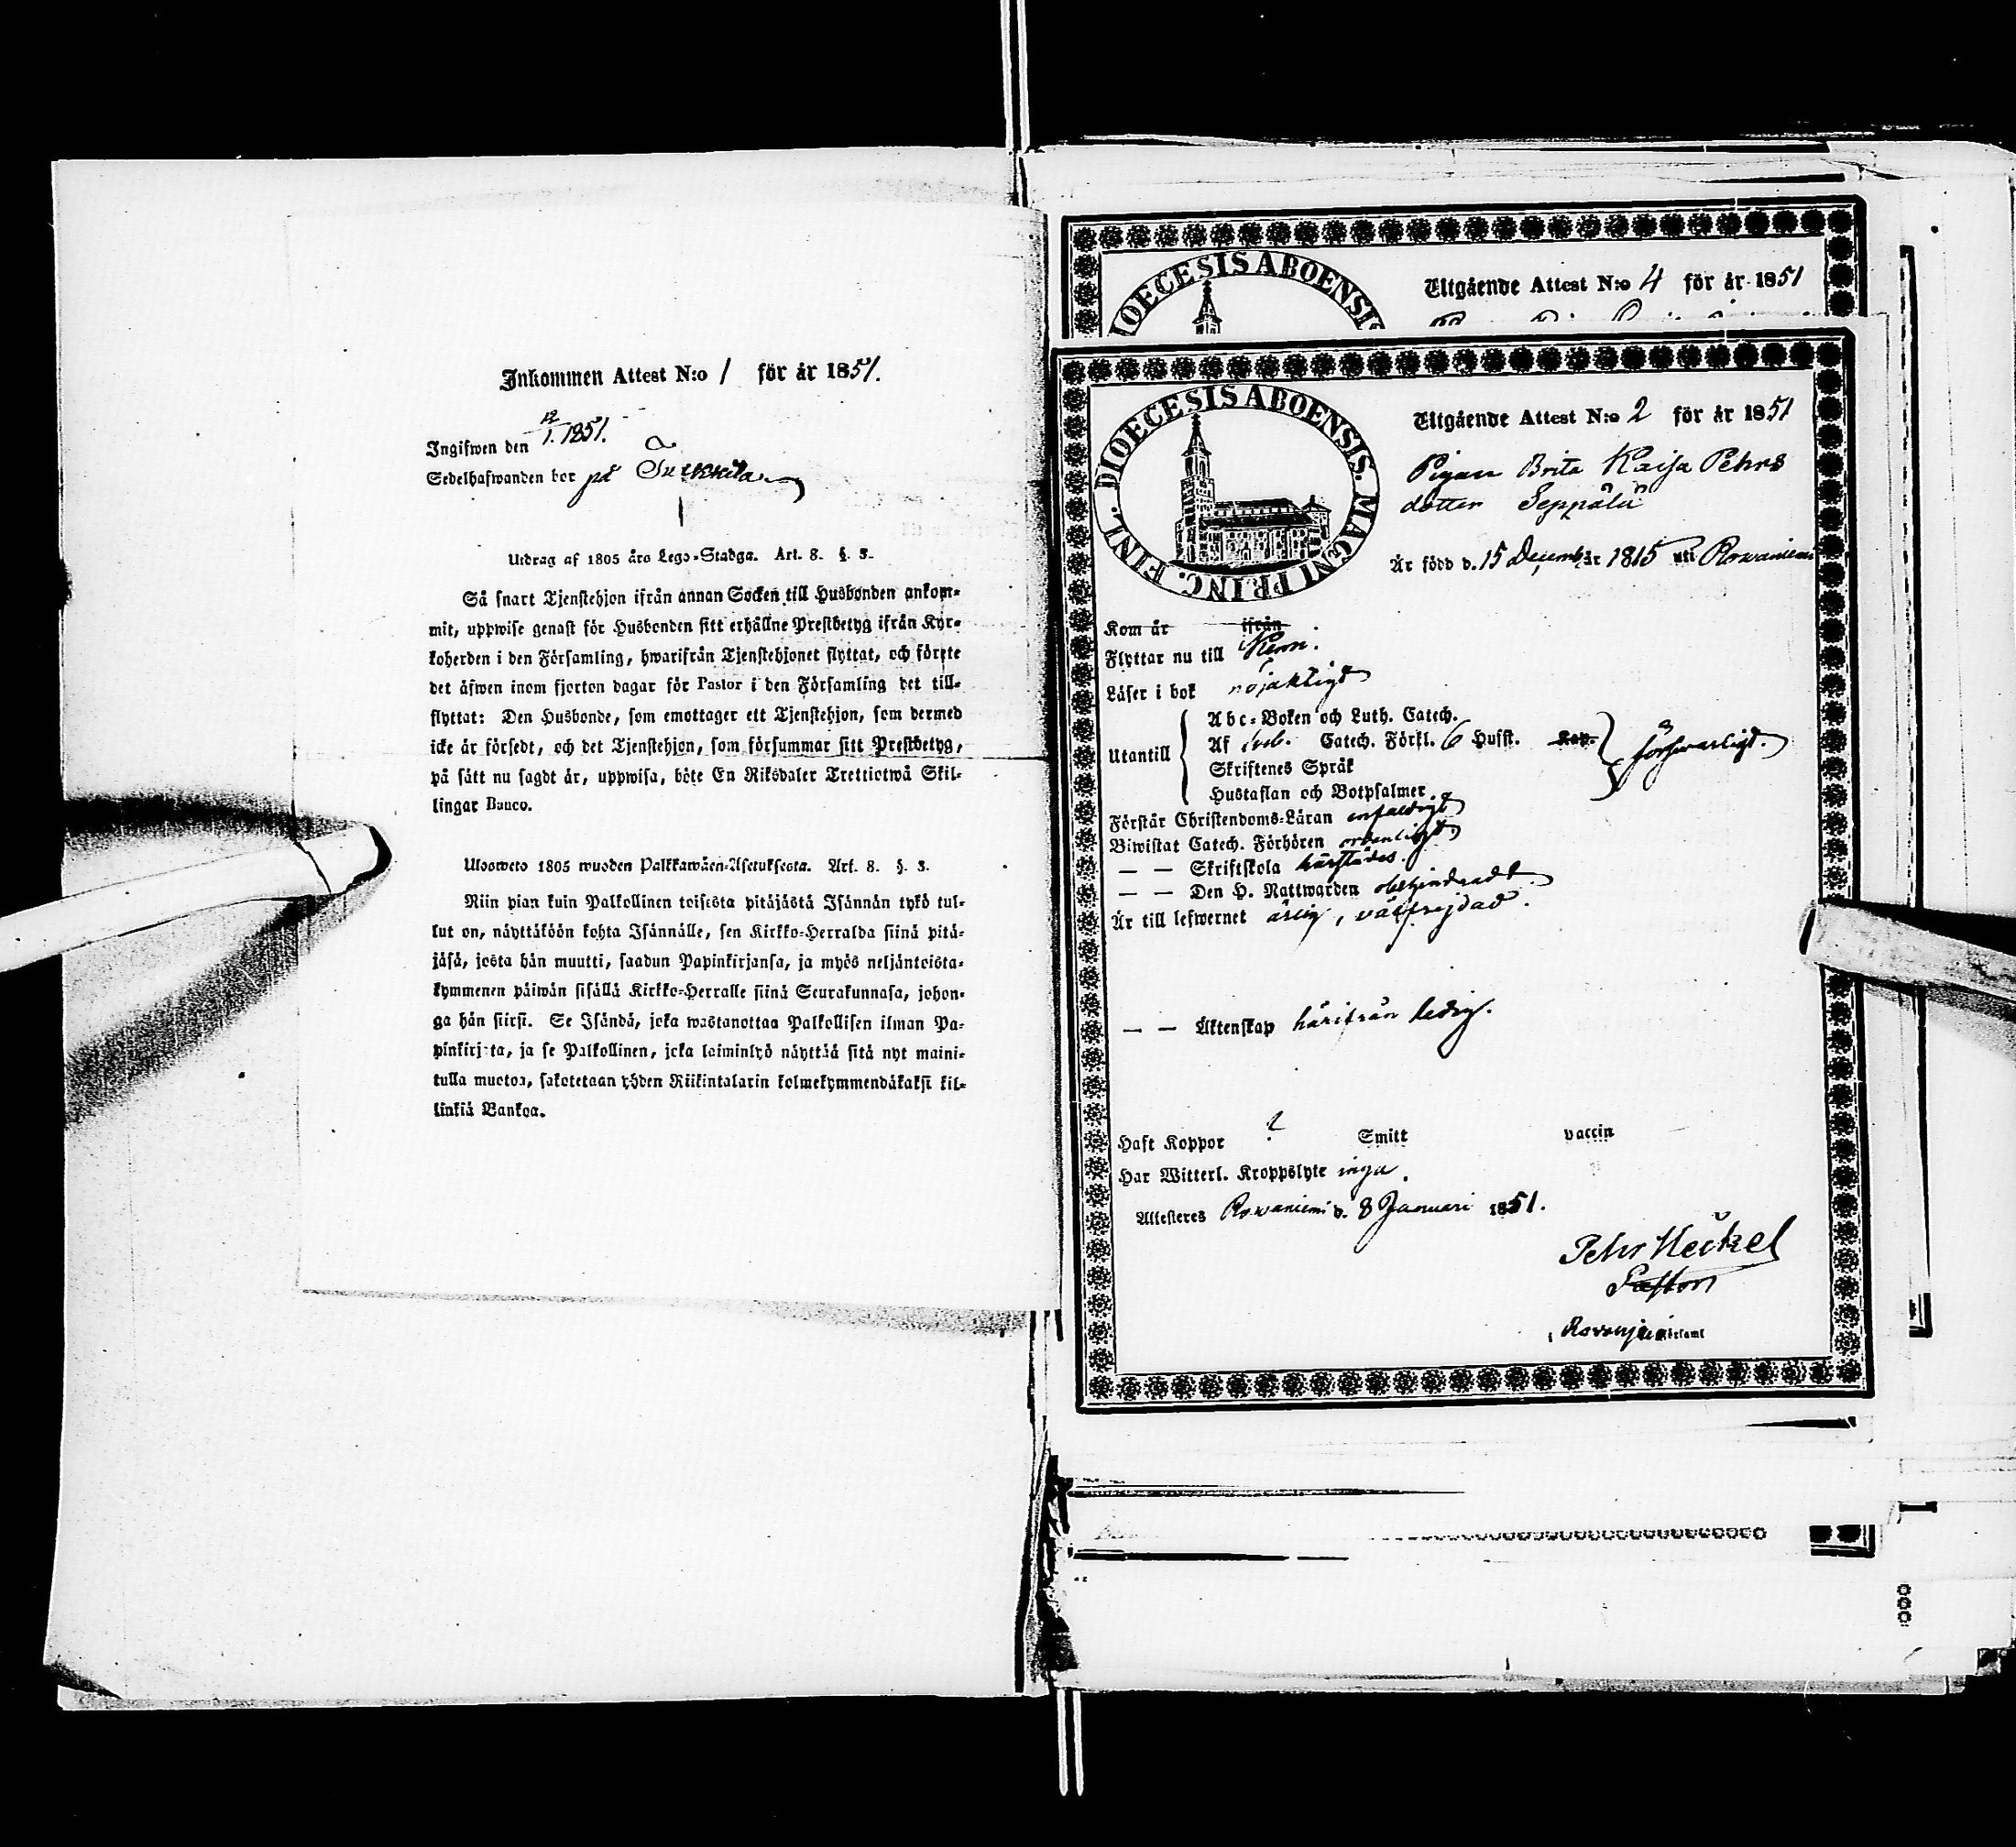 Inkommen Attest N:o 1 för år 1851.
Ingifwen den 12/1. 1851.
Sedelhafwanden bor på
Utdrag af 1805 års Lego-Stadga. Art. 8. §. 3.
Så snart Tjenstehjon ifrån annan Socken till Husbonden ankom-
mit, uppwise genast för Husbonden sitt erhållne Prestbetyg ifrån Kyr-
koherden i den Församling, hwarifrån Tjenstehjonet flyttat, och förete
det äfwen inom fjorton dagar för Pastor i den Församling det till-
flyttat: Den Husbonde, som emottager ett Tjenstehjon, som dermed
icke är försedt, och det Tjenstehjon, som försummar sitt Prestbetyg,
på sätt nu sagdt är, uppwisa, böte En Riksdaler Trettiotwå Skil-
lingar Banco.
Ulosweto 1805 wuoden Palkkawäen-Asetuksesta. Art. 8. §. 3.
Niin pian kuin Palkollinen toisesta pitäjästä Isännän tykö tul-
lut on, näyttäköön kohta Isännälle, sen Kirkko-Herralda siinä pitä-
jäsä, josta hän muutti, saadun Papinkirjansa, ja myös neljäntoista-
kymmenen päiwän sisällä Kirkko-Herralle siinä Seurakunnasa, johon-
ga hän siirsi. Se Isändä, joka wastanottaa Palkollisen ilman Pa-
pinkirjata, ja se Palkollinen, joka laiminlyö näyttää sitä nyt maini-
tulla muotoa, sakotetaan yhden Riikintalarin kolmekymmendäkaksi kil-
linkiä Bankoa.
DIOECESIS ABOENSIS
Utgående Attest N:o 4 för år 1851
DIOECESIS ABOENSIS. MAGNI PRINC. FINL.
Utgående Attest N:o 2 för år 1851
Pigan Brita Kaisa Pehrs
dotter Seppälä
Är född d. 15 Decemb. år 1815 uti Rowaniemi
Kom år ifrån
Flyttar nu till Kemi.
Läser i bok nöjaktigt
Utantill
Abc-Boken och Luth. Catech.
Af Catech. Förkl. 6 Hufst. Kap. försvarligt.
Skriftenes Språk
Hustaflan och Botpsalmer
Förstår Christendoms-Läran enfaldigt
Biwistat Catech. Förhören ordentligt
— — Skriftskola härstädes.
— — Den H. Nattwarden obehindradt.
Är till lefwernet ärlig, välfrejdad.
— — Äktenskap härifrån ledig.
Haft Koppor ? Smitt vaccin
Har Witterl. Kroppslyte inga.
Attesteres Rowaniemi d. 8 Januari 1851.
Pehr Heickel
Pastor